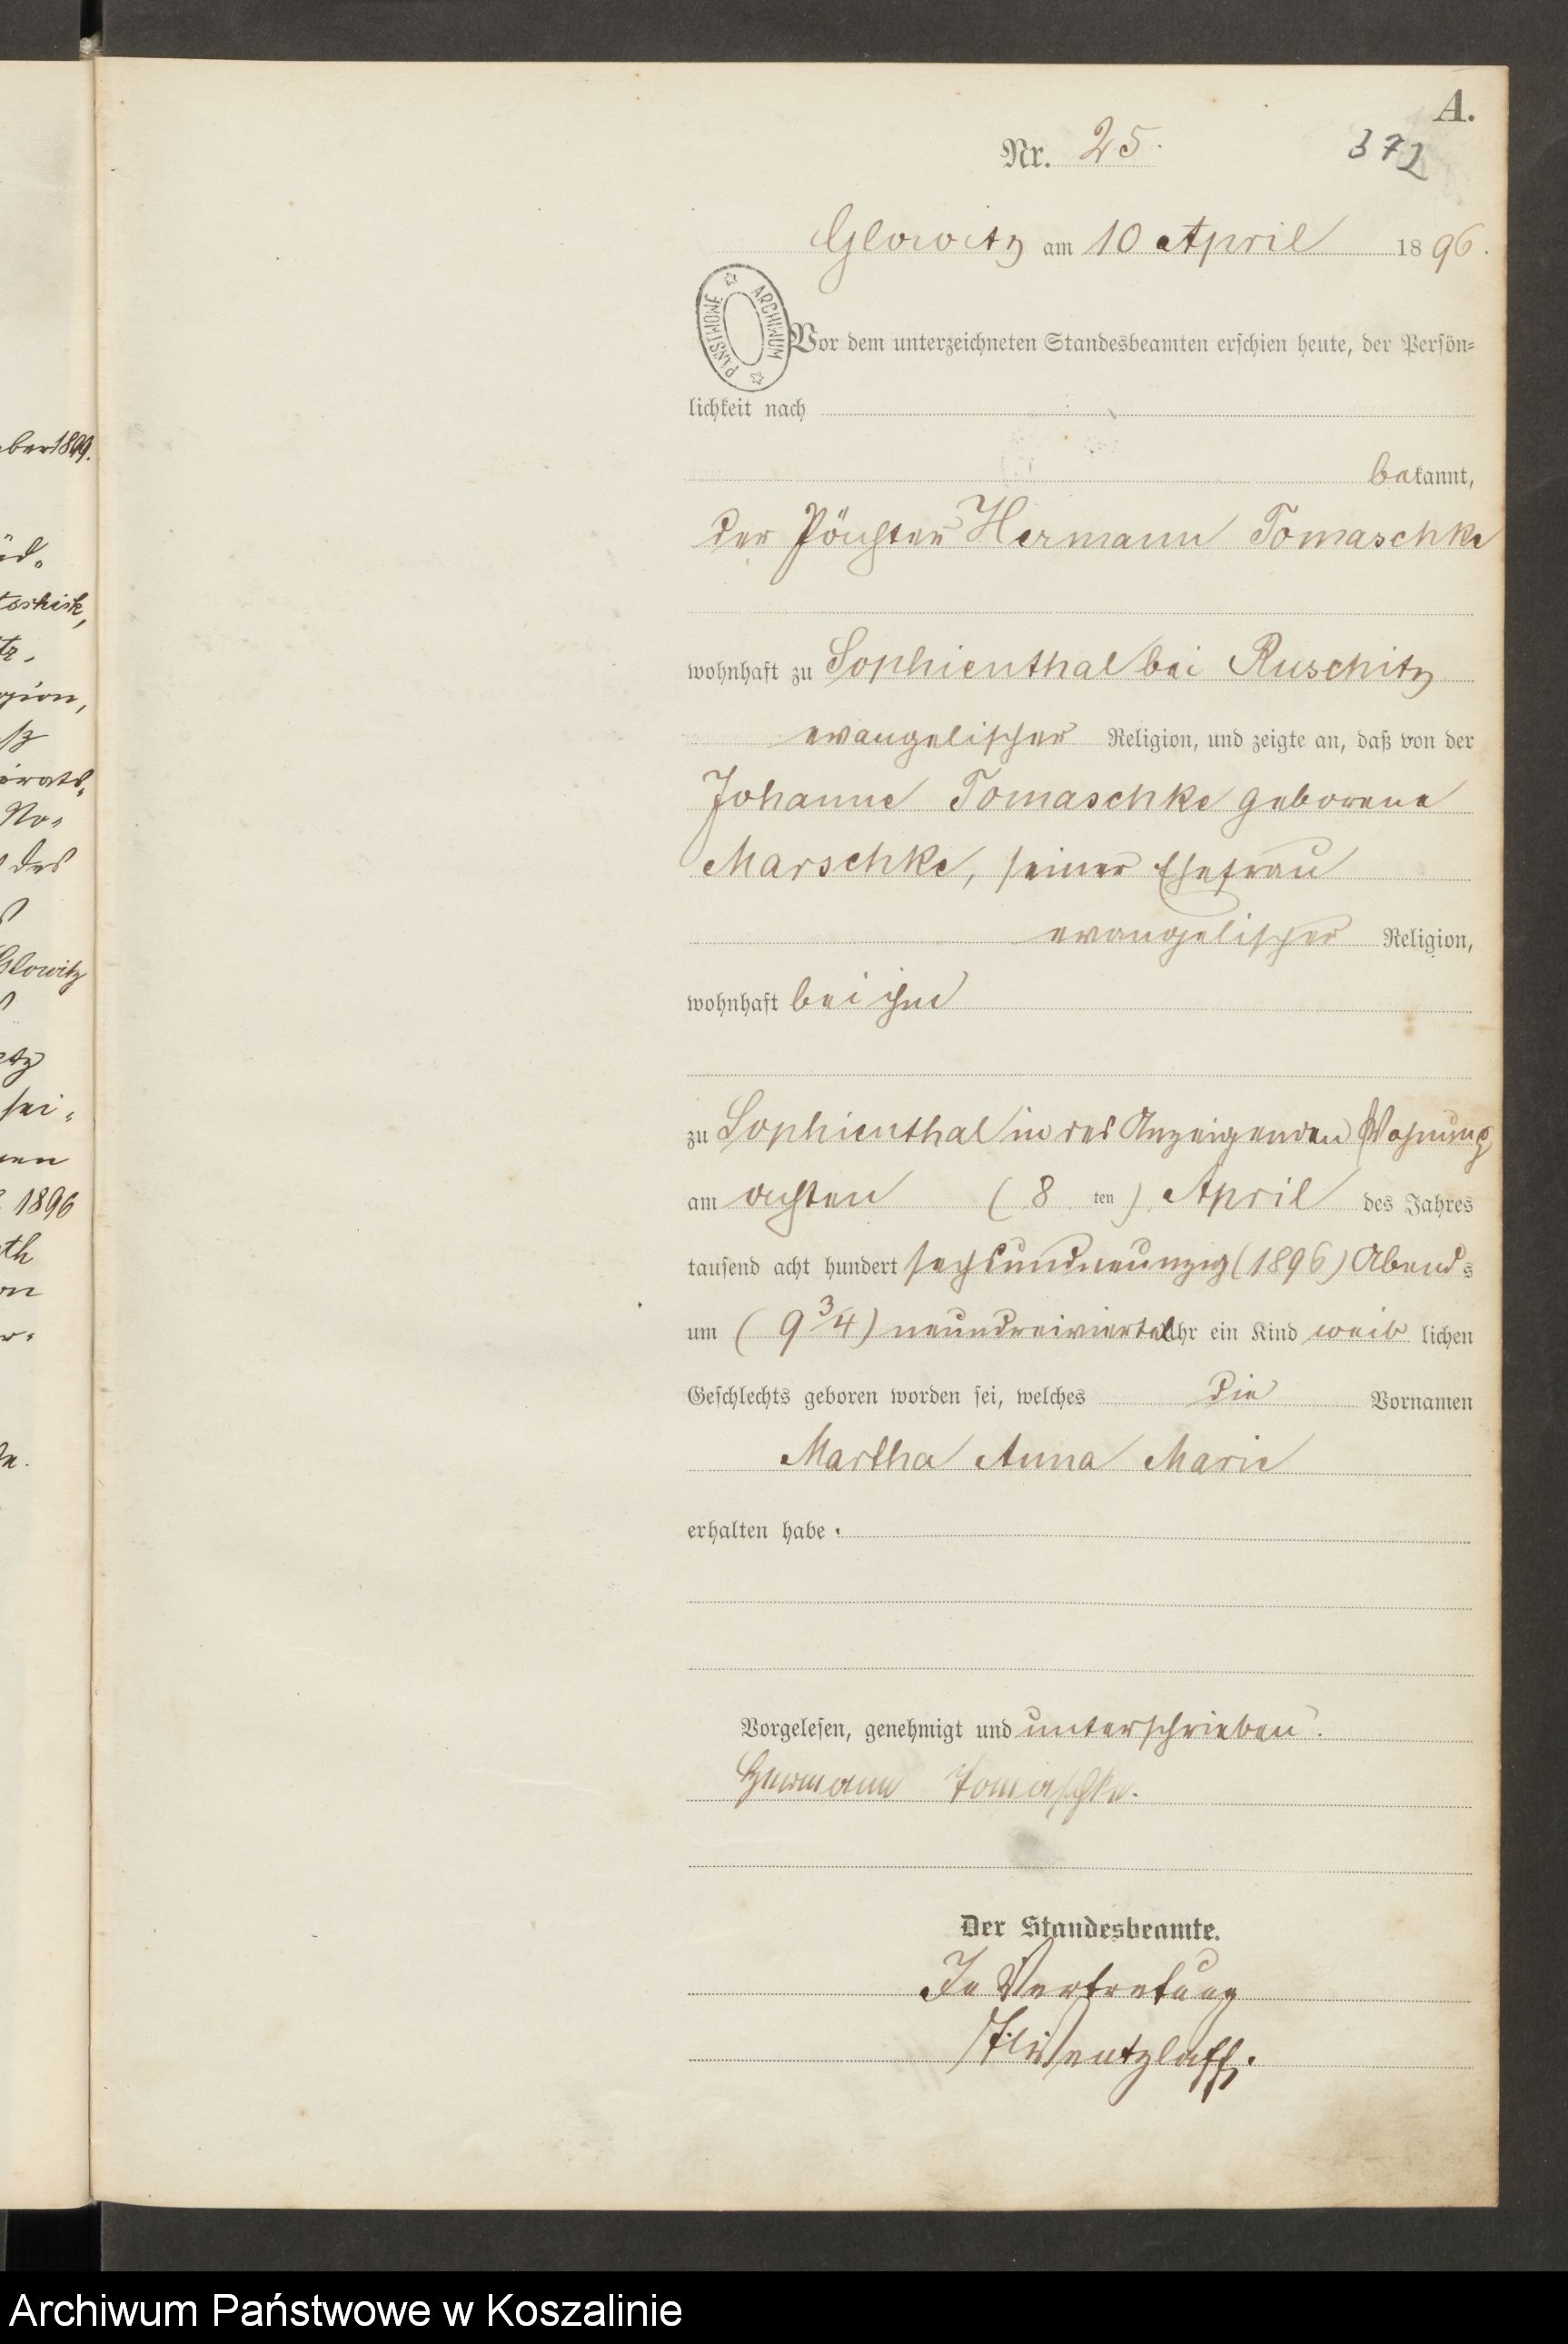 A.
Nr. 25.
372
Glowitz am 10 April 1896.
PAŃSTWOWE ARCHIWUM
Vor dem unterzeichneten Standesbeamten erschien heute, der Persön-
lichkeit nach
bekannt,
der Pächter Hermann Tomaschke
wohnhaft zu Sophienthal bei Ruschitz
evangelischer Religion, und zeigte an, daß von der
Johanne Tomaschke geborene
Marschke, seiner Ehefrau
evangelischer Religion,
wohnhaft bei ihm
zu Sophienthal in des Anzeigenden Wohnung
am achten (8ten) April des Jahres
tausend acht hundert sechsundneunzig (1896) Abends
um (9 3/4) neundreiviertel Uhr ein Kind weiblichen
Geschlechts geboren worden sei, welches die Vornamen
Martha Anna Marie
erhalten habe.
Vorgelesen, genehmigt und unterschrieben.
Hermann Tomaschke.
Der Standesbeamte.
In Vertretung
Wentzlaff.
ber 1899.
Glowitz
sei-
1896
Archiwum Państwowe w Koszalinie